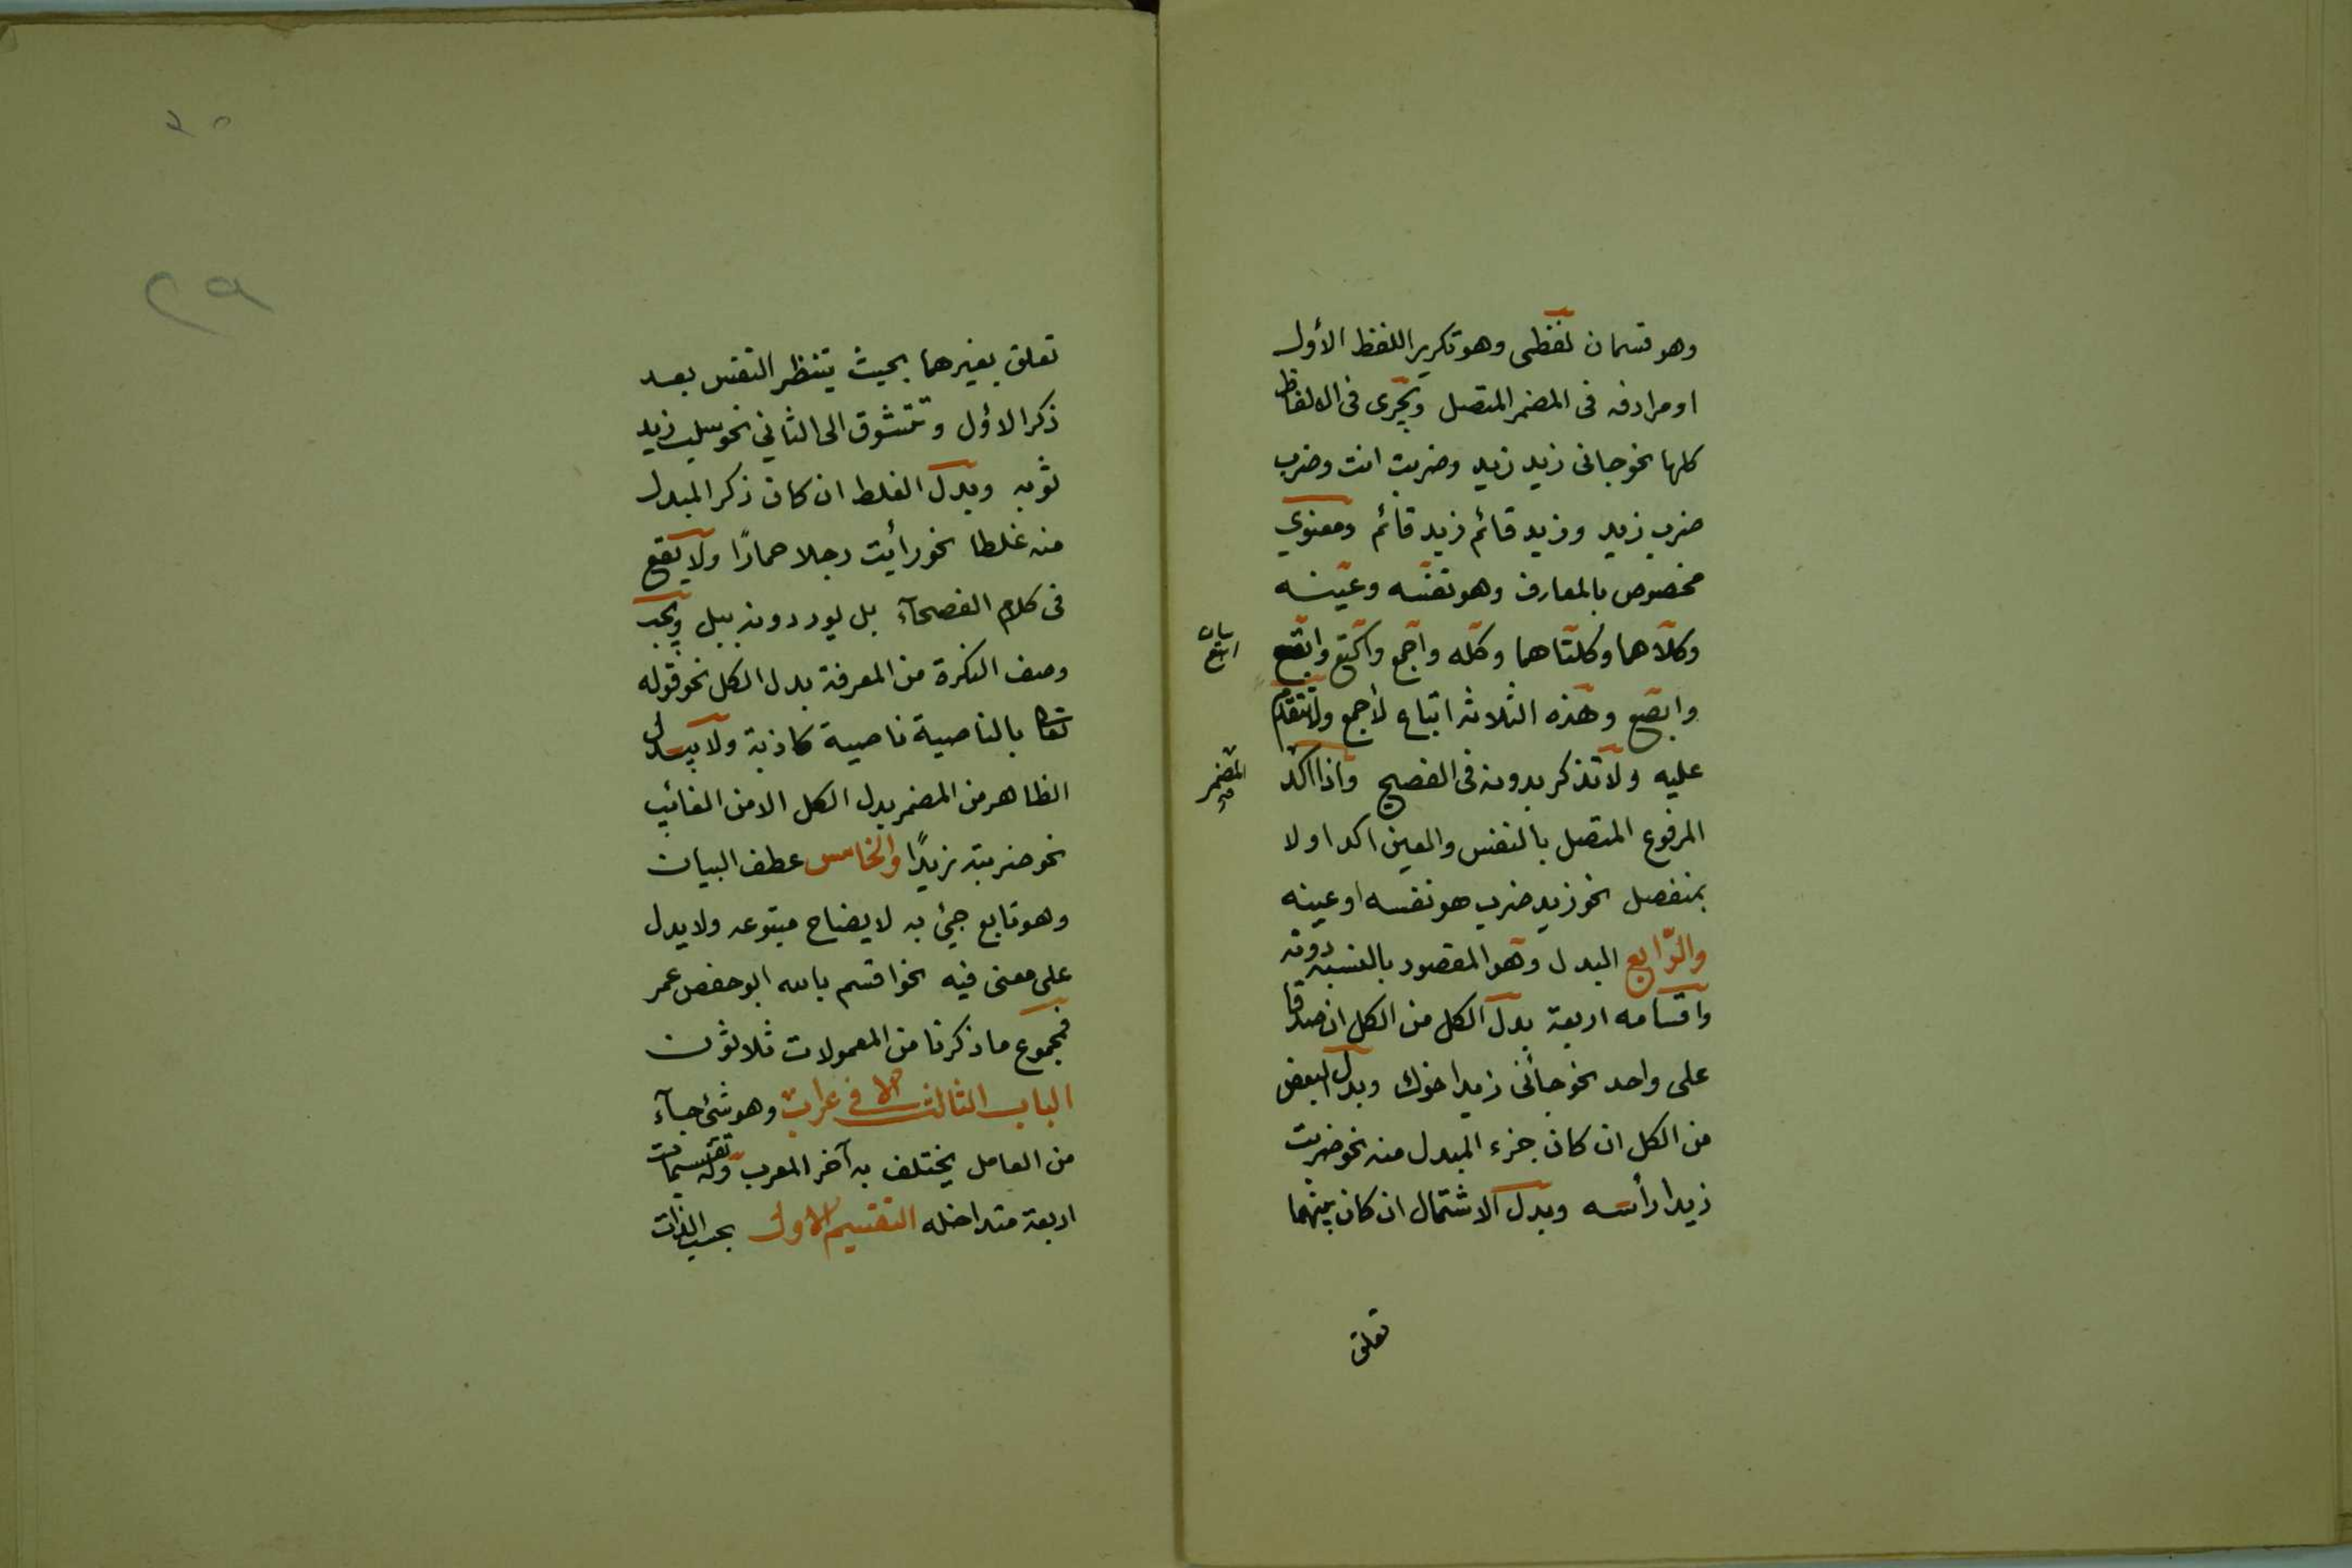 وهو قسمان لفظى وهو تكرير اللفظ الأول
او مرادفه فى المضمر المتصل ويجرى فى الالفاظ
كلها نحو جانى زيد زيد وضربت انت وضرب
ضرب زيد وزيد قائم زيد قائم ومعنوي
مخصوص بالمعارف وهو نفسه وعينه
وكلاهما وكلتاهما وكله واجمع واكتع وابتع
ابتع
وابصع وهذه الثلاثه اتباع لأجمع ولا تتقدم
عليه ولا تذكر بدونه فى الفصيح واذا اكد
المضمر
المرفوع المتصل بالنفس والعين اكد اولا
بمنفصل نحو زيد ضرب هو نفسه او عينه
والرّابع البدل وهو المقصود بالنسبة دونه
واقسامه اربعة بدل الكل من الكل ان صدقا
على واحد نحو جأنى زيد اخوك وبدل البعض
من الكل ان كان جزء المبدل منه نحو ضربت
زيدا رأسه وبدل الاشتمال ان كان بينهما
تعلق
٢٩
تعلق بغيرهما بحيث ينتظر النفس بعد
ذكر الاول وتتشوق الى الثاني نحو سلب زيد
ثوبه وبدل الغلط ان كان ذكر المبدل
منه غلطا نحو رأيت رجلا حمارًا ولا يقع
فى كلام الفصحآء بل يوردونه ببل ويجب
وصف النكرة من المعرفة بدل الكل نحو قوله
تعا بالناصية ناصية كاذبة ولا يبدل
الظاهر من المضمر بدل الكل الا من الغائب
نحو ضربته زيدًا والخامس عطف البيان
وهو تابع جيئ به لايضاح متبوعه ولا يدل
على معنى فيه نحو اقسم بالله ابو حفص عمر
فمجموع ما ذكرنا من المعمولات ثلاثون
الباب الثالث فى الاعراب وهو شئ جآء
من العامل يختلف به آخر المعرب وله تقسيمات
اربعة متداخله التقسيم الاول بحسب الذات